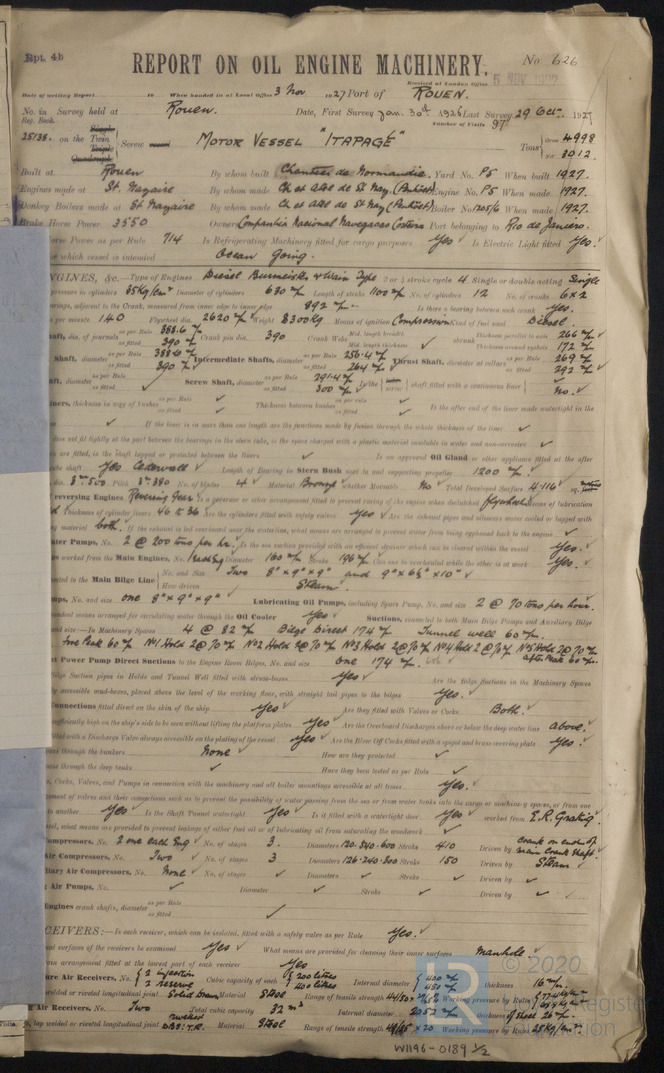 Rpt. 4b
REPORT ON OIL ENGINE MACHINERY.
No 626
Received at London Office
Date of writing Report 19 When handed in at Local Office 3 Nov 1927 Port of ROUEN.
No. in Survey held at Rouen. Date, First Survey Jan. 30th 1926 Last Survey 29 Oct 1927
Reg. Book. Number of Visits 97
2513S. on the Twin Screw MOTOR VESSEL "ITAPAGE" Tons Gross 4998
Triple
Quadruple
Net 3012.
Built at Rouen By whom built Chantiers de Normandie. Yard No. P5 When built 1927.
Engines made at St. Nazaire By whom made Ch et Atel de St Naz. (Penhoët) Engine No. P5 When made 1927.
Donkey Boilers made at St Nazaire By whom made Ch et Atel de St Naz. (Penhoët) Boiler No. 1205/6 When made 1927.
Brake Horse Power 3550 Owners Companhia Nacional Navegacao Costeira Port belonging to Rio de Janeiro.
Horse Power as per Rule 714 Is Refrigerating Machinery fitted for cargo purposes Yes Is Electric Light fitted Yes.
for which vessel is intended Ocean Going.
ENGINES, &c.—Type of Engines Diesel Burmeister & Wain Type 2 or 4 stroke cycle 4 Single or double acting Single
pressure in cylinders 35 Kg/cm² Diameter of cylinders 630 m/m Length of stroke 1100 m/m No. of cylinders 12 No. of cranks 6 x 2
bearings, adjacent to the Crank, measured from inner edge to inner edge 892 m/m Is there a bearing between each crank Yes.
per minute 140 Flywheel dia. 2620 m/m Weight 8300 Kg Means of ignition Compression Kind of fuel used Diesel.
Shaft, dia. of journals as per Rule 388.6 m/m as fitted 390 m/m Crank pin dia. 390 Crank Webs Mid. length breadth Mid. length thickness shrunk Thickness parallel to axis 266 m/m Thickness around eyehole 172 m/m
Shaft, diameter as per Rule 388.6 m/m as fitted 390 m/m Intermediate Shafts, diameter as per Rule 256.4 m/m as fitted 264 m/m Thrust Shaft, diameter at collars as per Rule 269 m/m as fitted 292 m/m
Shaft, diameter as per Rule as fitted Screw Shaft, diameter as per Rule 291.4 m/m as fitted 300 m/m Is the screw shaft fitted with a continuous liner No.
Liners, thickness in way of bushes as per Rule as fitted Thickness between bushes as per rule as fitted Is the after end of the liner made watertight in the
If the liner is in more than one length are the junctions made by fusion through the whole thickness of the liner
does not fit tightly at the part between the bearings in the stern tube, is the space charged with a plastic material insoluble in water and non-corrosive
are fitted, is the shaft lapped or protected between the liners Is an approved Oil Gland or other appliance fitted at the after
tube shaft Yes Cederwall Length of Bearing in Stern Bush next to and supporting propeller 1200 m/m
No. of blades 4 Material Bronze whether Moveable No Total Developed Surface 4.116
reversing Engines Reversing Gear Is a governor or other arrangement fitted to prevent racing of the engine when declutched flywheel Means of lubrication
Thickness of cylinder liners 46 to 36 Are the cylinders fitted with safety valves Yes Are the exhaust pipes and silencers water cooled or lagged with
material both. If the exhaust is led overboard near the waterline, what means are arranged to prevent water from being syphoned back to the engine
Water Pumps, No. 2 @ 200 tons per hr. Is the sea suction provided with an efficient strainer which can be cleared within the vessel Yes.
worked from the Main Engines, No. 1 each Eng Diameter 160 m/m Stroke 196 m/m Can one be overhauled while the other is at work Yes.
connected to the Main Bilge Line No. and Size Two 8" x 9" x 9" and 9" x 6½" x 10"
How driven Steam.
Pumps, No. and size one 8" x 9" x 9" Lubricating Oil Pumps, including Spare Pump, No. and size 2 @ 70 tons per hour.
independent means arranged for circulating water through the Oil Cooler Yes Suctions, connected to both Main Bilge Pumps and Auxiliary Bilge
and size:—In Machinery Spaces 4 @ 82 m/m Bilge Direct 174 m/m Tunnel well 60 m/m.
fore Peak 60 m/m No1 Hold 2 @ 70 m/m No2 Hold 2 @ 70 m/m No3 Hold 2 @ 70 m/m No4 Hold 2 @ 70 m/m No5 Hold 2 @ 70 m/m after Peak 60 m/m.
Power Pump Direct Suctions to the Engine Room Bilges, No. and size one 174 m/m.
Bilge Suction pipes in Holds and Tunnel Well fitted with strum-boxes Yes Are the Bilge Suctions in the Machinery Spaces
easily accessible mud-boxes, placed above the level of the working floor, with straight tail pipes to the bilges Yes.
Connections fitted direct on the skin of the ship Yes Are they fitted with Valves or Cocks Both.
sufficiently high on the ship's side to be seen without lifting the platform plates Yes Are the Overboard Discharges above or below the deep water line above.
fitted with a Discharge Valve always accessible on the plating of the vessel Yes Are the Blow Off Cocks fitted with a spigot and brass covering plate Yes.
pass through the bunkers None How are they protected
pass through the deep tanks Have they been tested as per Rule
Pipes, Cocks, Valves, and Pumps in connection with the machinery and all boiler mountings accessible at all times Yes.
arrangement of valves and their connections such as to prevent the possibility of water passing from the sea or from water tanks into the cargo or machinery spaces, or from one
to another Yes Is the Shaft Tunnel watertight Yes Is it fitted with a watertight door Yes worked from E.R. Grating.
vessel, what means are provided to prevent leakage of either fuel oil or of lubricating oil from saturating the woodwork
Compressors, No. 2 one each Eng No. of stages 3. Diameters 120.540.600 Stroke 410 Driven by crank on end of main Crank Shaft.
Air Compressors, No. Two No. of stages 3 Diameters 126.240.300 Stroke 150 Driven by Steam
Auxiliary Air Compressors, No. None No. of stages Diameters Stroke Driven by
Air Pumps, No. Diameter Stroke Driven by
Engines crank shafts, diameter as per Rule as fitted
RECEIVERS:—Is each receiver, which can be isolated, fitted with a safety valve as per Rule Yes.
internal surfaces of the receivers be examined Yes What means are provided for cleaning their inner surfaces Manhole.
drain arrangement fitted at the lowest part of each receiver Yes
Pressure Air Receivers, No. 2 injection 2 reserve Cubic capacity of each 200 litres 400 litres Internal diameter 400 m/m 450 m/m thickness 16 m/m
welded or riveted longitudinal joint Solid drawn Material Steel Range of tensile strength Working pressure by Rules
Air Receivers, No. Two Total cubic capacity 32 m³ Internal diameter 2057 m/m thickness of steel 26 m/m
lap welded or riveted longitudinal joint riveted DBS: T.R. Material Steel Range of tensile strength Working pressure by Rules 25 Kg/cm²
© 2020
LR
Register
Foundation
W1196-0189 1/2